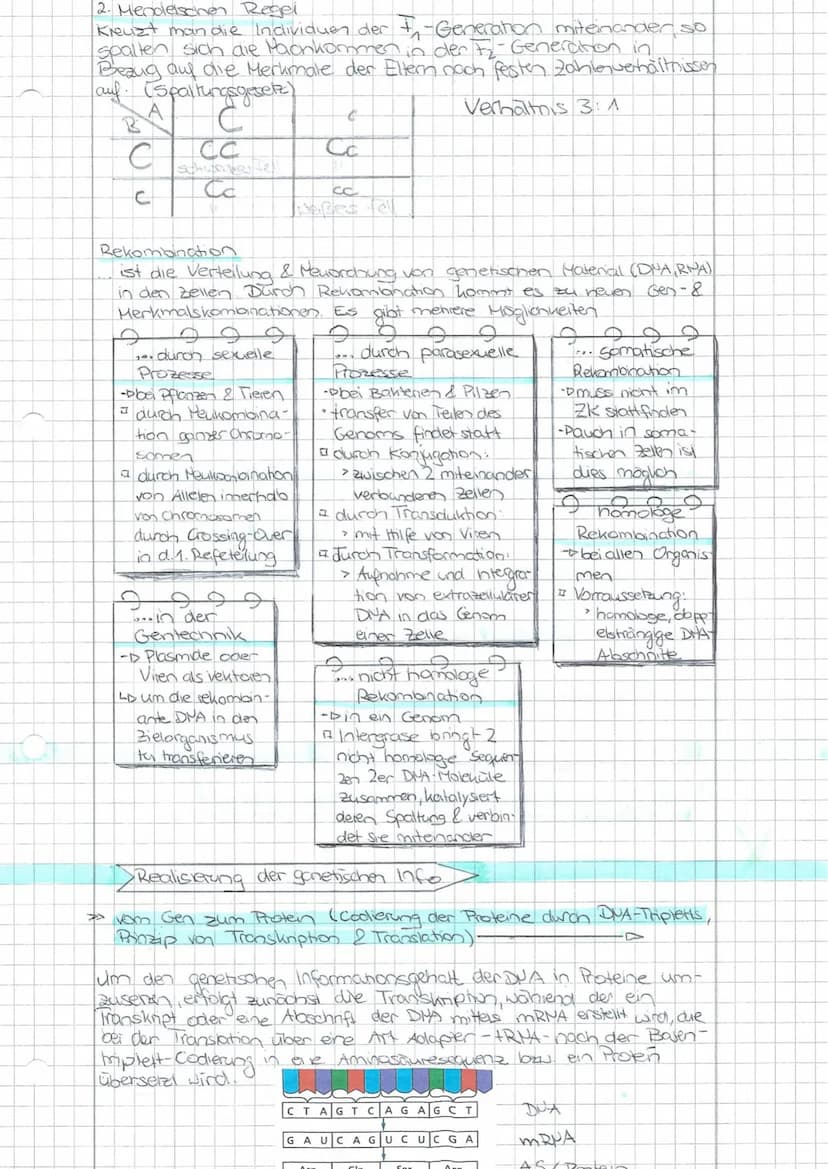 2. Mendelschen Regel
Kreuzt man die Individuen der F1-Generation miteinander, so
spalten sich die Nachkommen in der F2-Generation in
Bezug auf die Merkmale der Eltern nach festen Zahlenverhältnissen
auf. (Spaltungsgesetz)
Verhältnis 3:1
A
B
C
c
C
CC
Cc
c
Cc
cc
weißes Fell
Rekombination
... ist die Verteilung & Neuordnung von genetischen Material (DNA, RNA)
in den Zellen. Durch Rekombination kommt es zu neuen Gen- &
Merkmalskombinationen. Es gibt mehrere Möglichkeiten
... durch sexuelle
Prozesse
bei Pflanzen & Tieren
durch Neukombina-
tion ganzer Chromo-
somen
durch Neukombination
von Allelen innerhalb
von Chromosomen
durch Crossing-Over
in d. 1. Reifeteilung
... durch parasexuelle
Prozesse
bei Bakterien & Pilzen
• transfer von Teilen des
Genoms findet statt
durch Konjugation:
> zwischen 2 miteinander
verbundenen Zellen
durch Transduktion:
> mit Hilfe von Viren
durch Transformation:
> Aufnahme und Integra-
tion von extrazellulärer
DNA in das Genom
einer Zelle
... somatische
Rekombination
muss nicht im
ZK stattfinden
auch in soma-
tischen Zellen ist
dies möglich
homologe
Rekombination
bei allen Organis
men
Vorraussetzung:
> homologe, dopp
elsträngige DNA-
Abschnitte
... in der
Gentechnik
Plasmide oder
Viren als Vektoren
um die rekombin-
ante DNA in den
Zielorganismus
zu transferieren
... nicht homologe
Rekombination
in ein Genom
Intergrase bringt 2
nicht homologe Sequen
zen 2er DNA-Moleküle
zusammen, katalysiert
deren Spaltung & verbin-
det sie miteinander
Realisierung der genetischen Info
>> vom Gen zum Protein (Codierung der Proteine durch DNA-Tripletts,
Prinzip von Transkription & Translation)
Um den genetischen Informationsgehalt der DNA in Proteine um-
zusetzen, erfolgt zunächst die Transkription, während der ein
Transkript oder eine Abschrift der DNA mittels mRNA erstellt wird, die
bei der Translation über eine Art Adapter -tRNA- nach der Basen-
triplett-Codierung in eine Aminosäuresequenz bzw. ein Protein
übersetzt wird.
C T A G T C A G A G C T DNA
G A U C A G U C U C G A mRNA